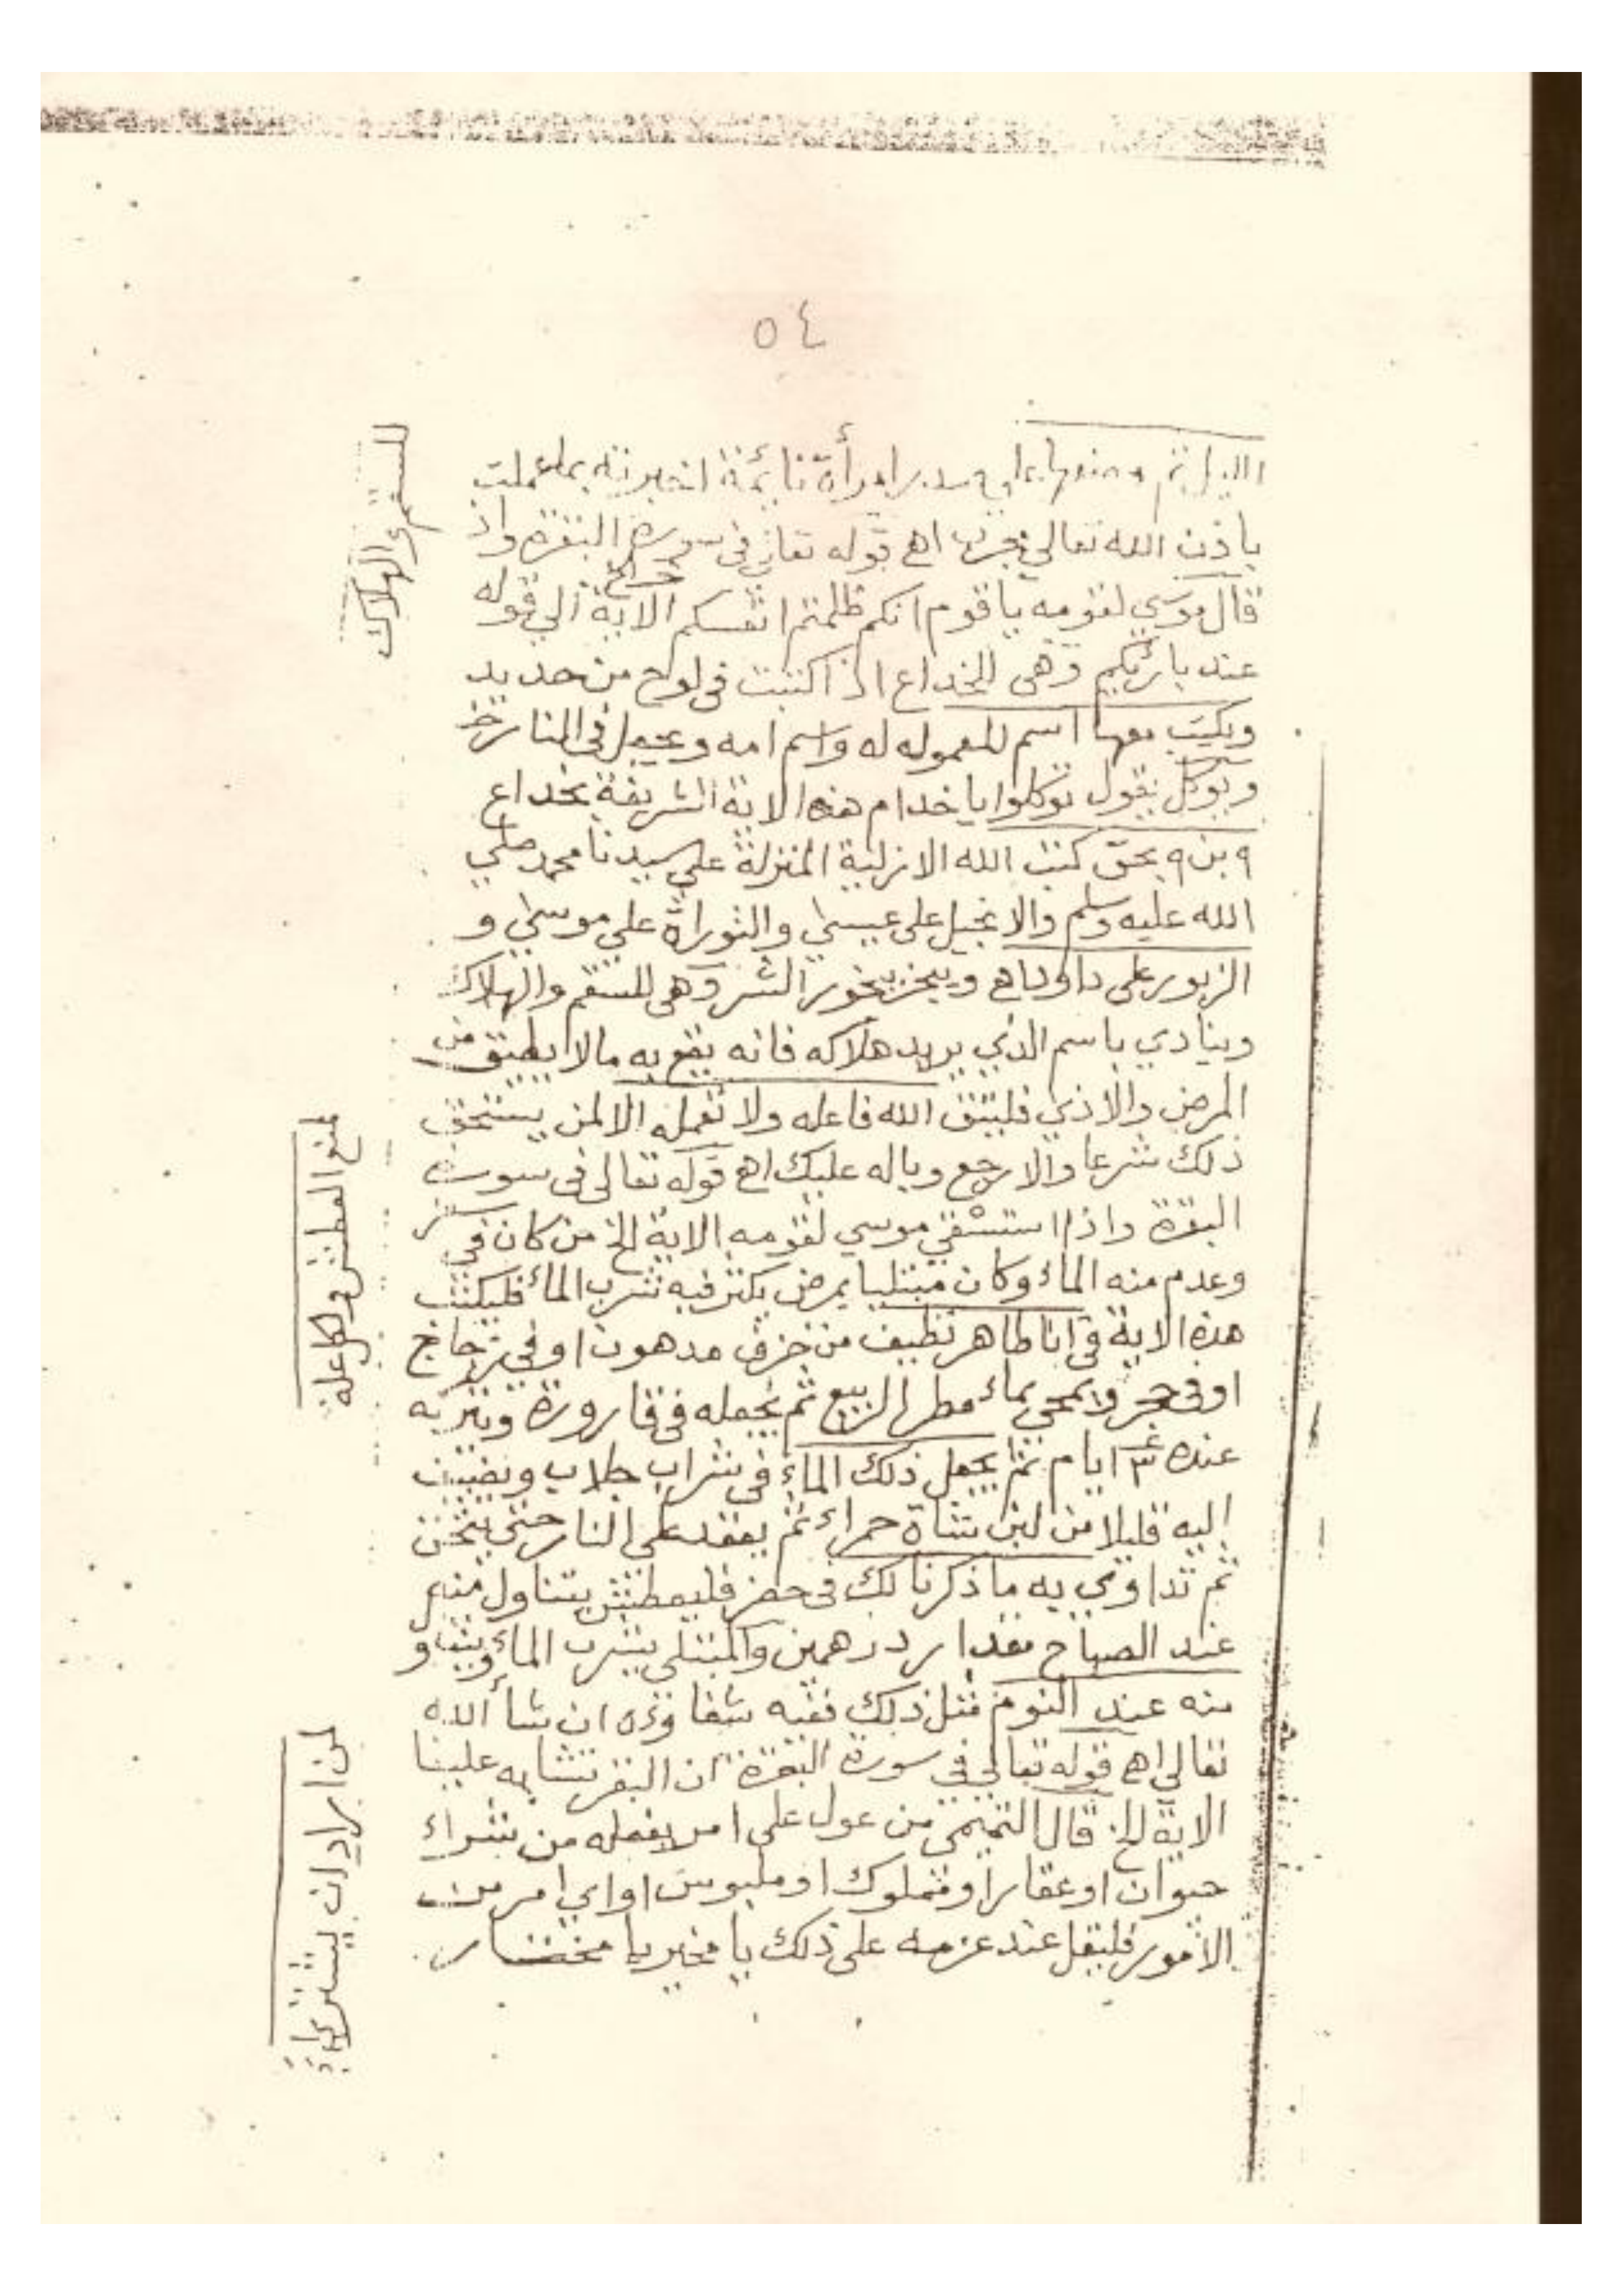 ٥٤
للسقم والهلاك
الليل ثم وضعها علي صدر امرأة نائمة اخبرته بما عملت
باذن الله تعالي مجرب اهـ قوله تعالي في سورة البقرة واذ
قال موسي لقومه ياقوم انكم ظلمتم انفسكم الاية الي قوله
عند بارئكم وهي الخداع اذا كتبت في لوح من حديد
ويكتب معها اسم المعموله له واسم امه ويجعل في النار
ويوكل يقول توكلوا ياخدام هذه الاية الشريفة بخداع
٩ بن ٩ بحق كتب الله الازلية المنزلة علي سيدنا محمد صلي
الله عليه وسلم والانجيل علي عيسي والتوراة علي موسي و
الزبور علي داود اهـ ويبخر ببخور الشر وهي للسقم والهلاك
وينادي باسم الذي يريد هلاكه فانه يقع به مالا يطيق من
المرض والاذي فليتق الله فاعله ولا تعمله الالمن يستحق
ذلك شرعا والارجع وباله عليك اهـ قوله تعالي في سورة
لمنع العطش ولكل علة
البقرة واذا استسقي موسي لقومه الاية الخ من كان في سفر
وعدم منه الماء وكان مبتليا بمرض يكثر فيه شرب الماء فليكتب
هذه الاية في انا طاهر نظيف من خزف مدهون او في زجاج
او في حجر ويمحي بماء مطر الربيع ثم يجعله في قارورة ويتركه
عنده ٣ ايام ثم يجعل ذلك الماء في شراب جلاب ويضيف
اليه قليلا من لبن شاة حمراء ثم يعقد علي النار حتي يثخن
ثم تداوي به ما ذكرنا لك في حضر فليعطش يتناول منه
عند الصباح مقدار درهمين والمبتلي بشرب الماء
منه عند النوم مثل ذلك ففيه شفاؤه ان شاء الله
لمن اراد ان يشتري
تعالي اهـ قوله تعالي في سورة البقرة ان البقر تشابه علينا
الاية الخ قال التميمي من عول علي امر يفعله من شراء
حيوان او عقار او مملوك او ملبوس او اي امر من
الامور فليقل عند عزمه علي ذلك يا مخير يا مختار